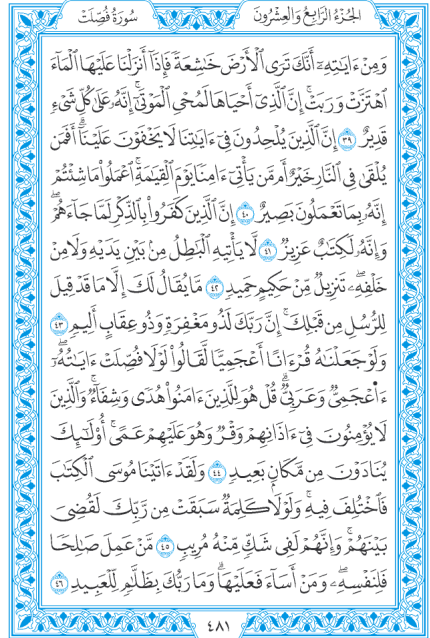 الجُزْءُ الرَّابِعُ وَالعِشْرُونَ
سُورَةُ فُصِّلَت
وَمِنْ ءَايَٰتِهِۦٓ أَنَّكَ تَرَى ٱلْأَرْضَ خَٰشِعَةً فَإِذَآ أَنزَلْنَا عَلَيْهَا ٱلْمَآءَ
ٱهْتَزَّتْ وَرَبَتْۚ إِنَّ ٱلَّذِىٓ أَحْيَاهَا لَمُحْىِ ٱلْمَوْتَىٰٓۚ إِنَّهُۥ عَلَىٰ كُلِّ شَىْءٍ
قَدِيرٌ ٣٩ إِنَّ ٱلَّذِينَ يُلْحِدُونَ فِىٓ ءَايَٰتِنَا لَا يَخْفَوْنَ عَلَيْنَآۗ أَفَمَن
يُلْقَىٰ فِى ٱلنَّارِ خَيْرٌ أَم مَّن يَأْتِىٓ ءَامِنًا يَوْمَ ٱلْقِيَٰمَةِۚ ٱعْمَلُوا۟ مَا شِئْتُمْ
إِنَّهُۥ بِمَا تَعْمَلُونَ بَصِيرٌ ٤٠ إِنَّ ٱلَّذِينَ كَفَرُوا۟ بِٱلذِّكْرِ لَمَّا جَآءَهُمْۖ
وَإِنَّهُۥ لَكِتَٰبٌ عَزِيزٌ ٤١ لَّا يَأْتِيهِ ٱلْبَٰطِلُ مِنۢ بَيْنِ يَدَيْهِ وَلَا مِنْ
خَلْفِهِۦۖ تَنزِيلٌ مِّنْ حَكِيمٍ حَمِيدٍ ٤٢ مَّا يُقَالُ لَكَ إِلَّا مَا قَدْ قِيلَ
لِلرُّسُلِ مِن قَبْلِكَۚ إِنَّ رَبَّكَ لَذُو مَغْفِرَةٍ وَذُو عِقَابٍ أَلِيمٍ ٤٣
وَلَوْ جَعَلْنَٰهُ قُرْءَانًا أَعْجَمِيًّا لَّقَالُوا۟ لَوْلَا فُصِّلَتْ ءَايَٰتُهُۥٓۖ
ءَا۬عْجَمِىٌّ وَعَرَبِىٌّۗ قُلْ هُوَ لِلَّذِينَ ءَامَنُوا۟ هُدًى وَشِفَآءٌۚ وَٱلَّذِينَ
لَا يُؤْمِنُونَ فِىٓ ءَاذَانِهِمْ وَقْرٌ وَهُوَ عَلَيْهِمْ عَمًىۚ أُو۟لَٰٓئِكَ
يُنَادَوْنَ مِن مَّكَانٍۭ بَعِيدٍ ٤٤ وَلَقَدْ ءَاتَيْنَا مُوسَى ٱلْكِتَٰبَ
فَٱخْتُلِفَ فِيهِۚ وَلَوْلَا كَلِمَةٌ سَبَقَتْ مِن رَّبِّكَ لَقُضِىَ
بَيْنَهُمْۚ وَإِنَّهُمْ لَفِى شَكٍّ مِّنْهُ مُرِيبٍ ٤٥ مَّنْ عَمِلَ صَٰلِحًا
فَلِنَفْسِهِۦۖ وَمَنْ أَسَآءَ فَعَلَيْهَاۗ وَمَا رَبُّكَ بِظَلَّٰمٍ لِّلْعَبِيدِ ٤٦
٤٨١